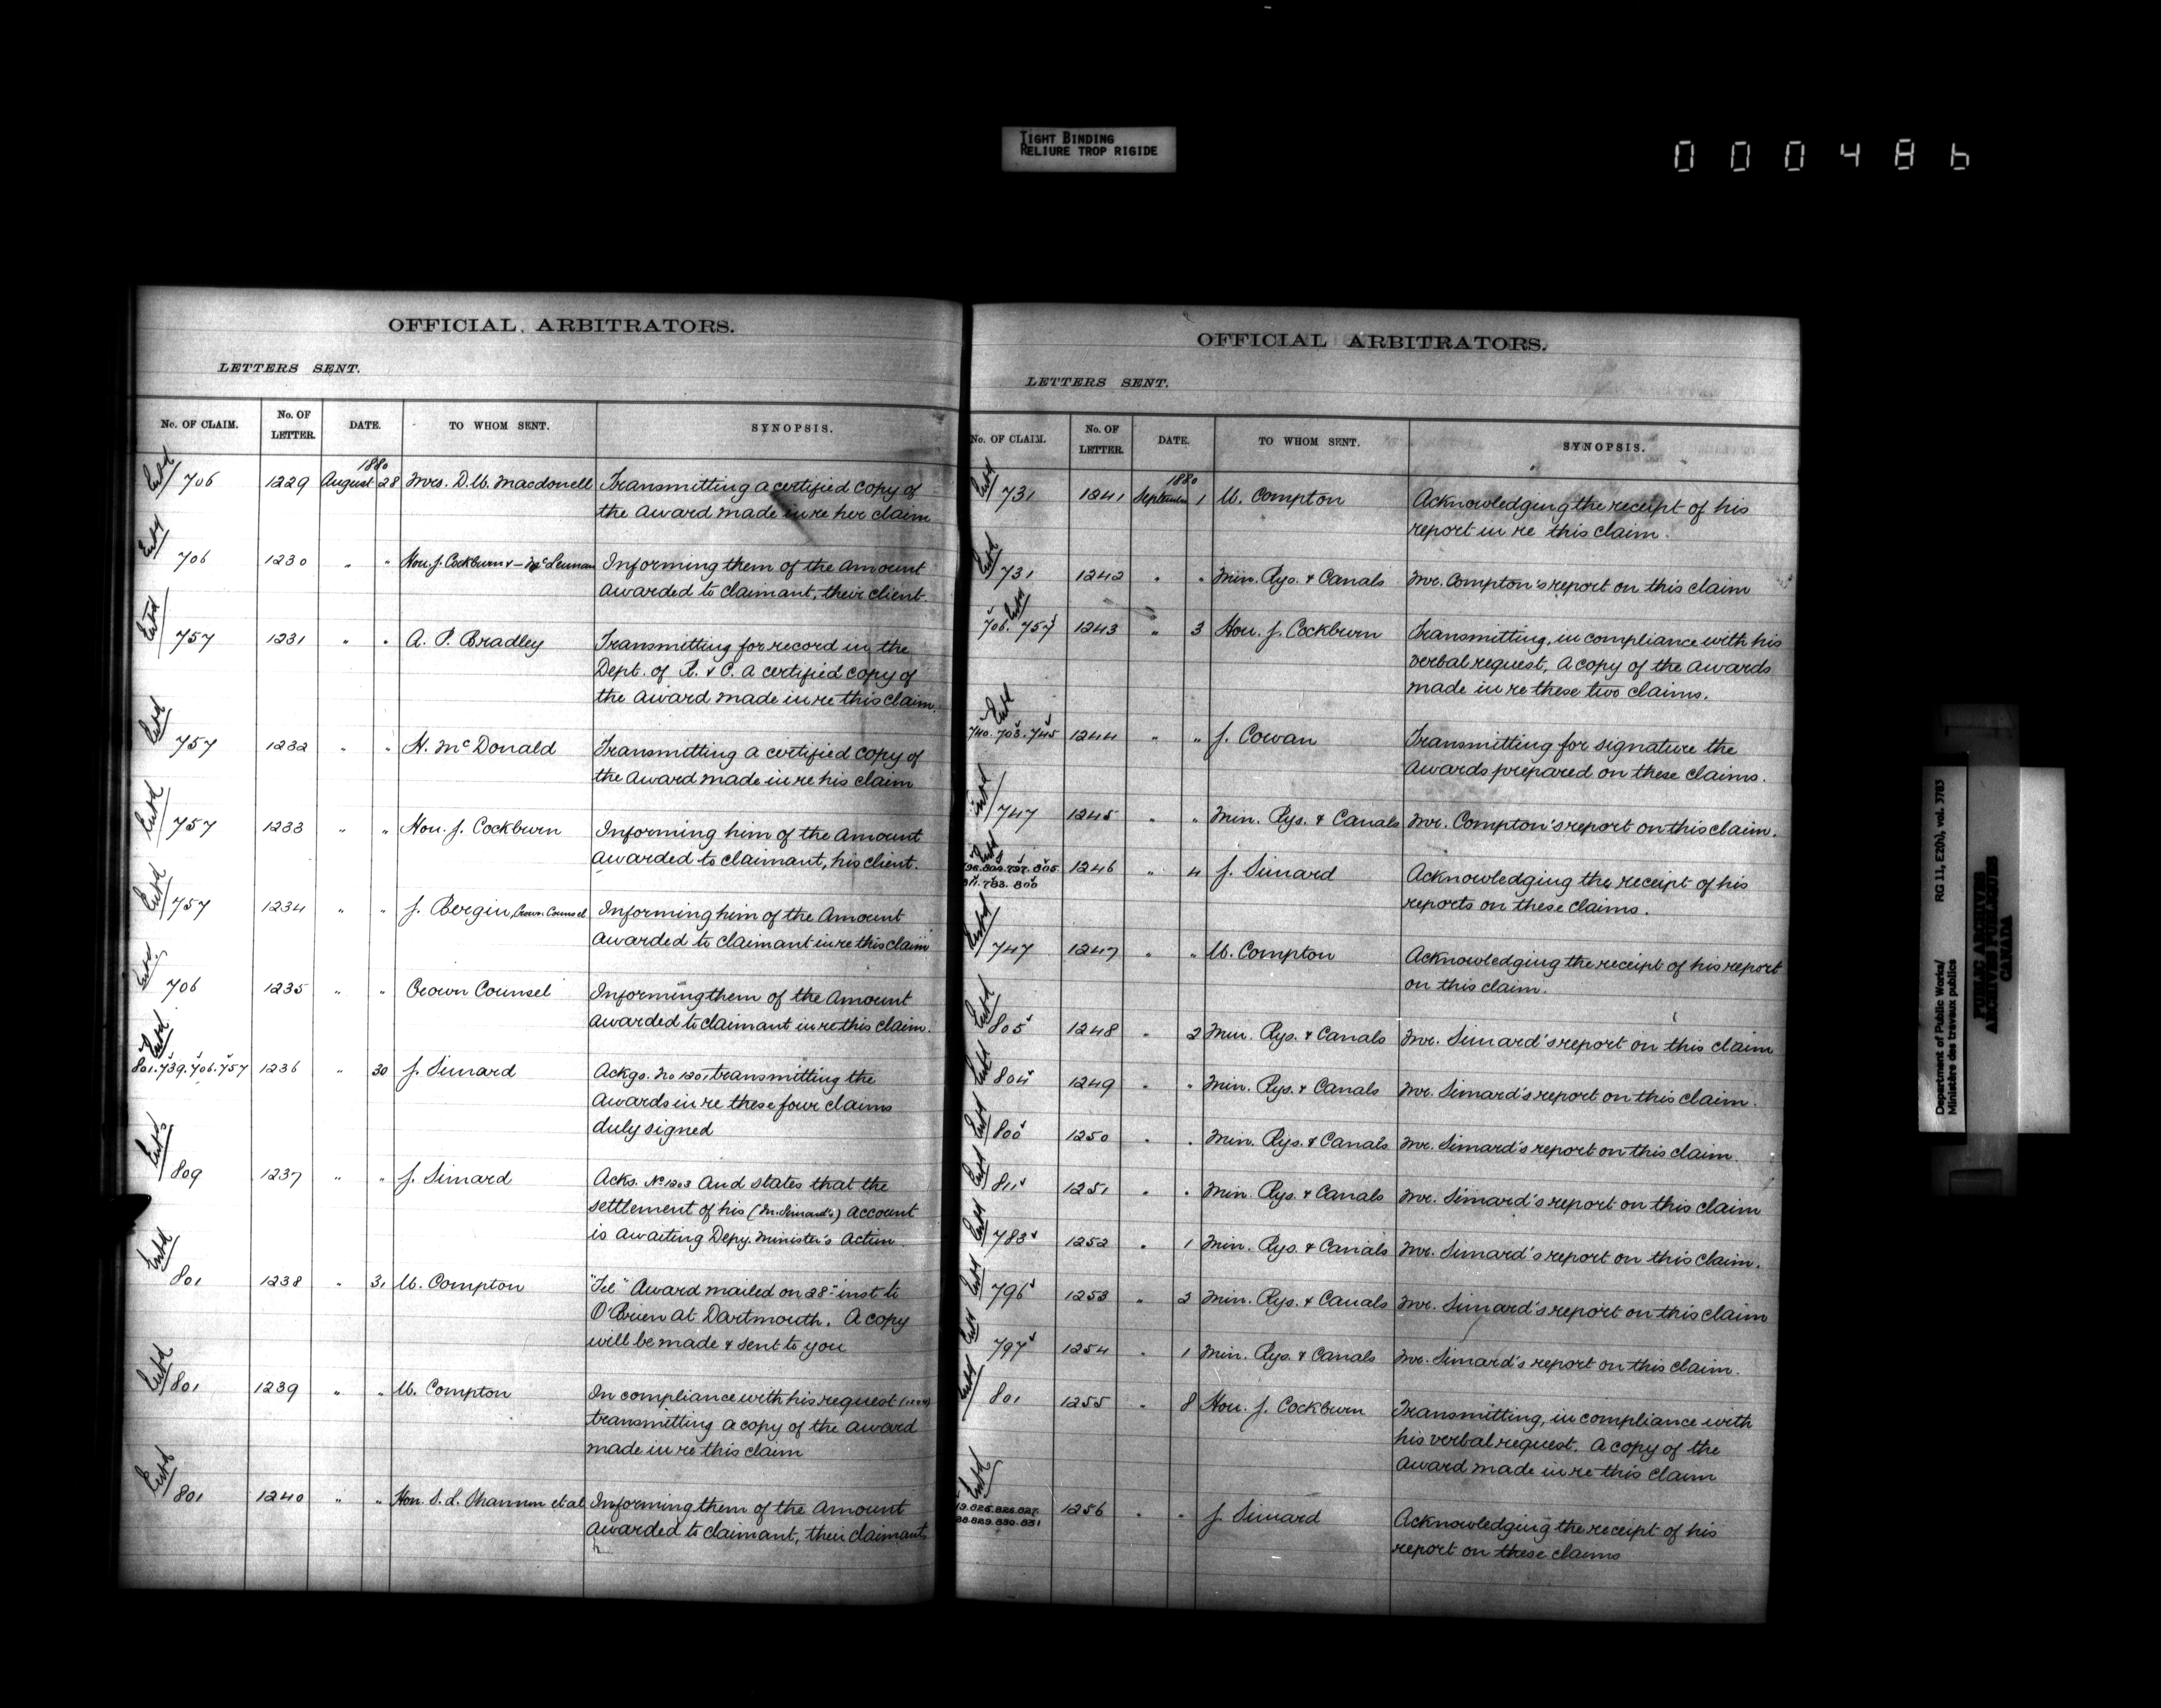 TIGHT BINDING
RELIURE TROP RIGIDE
000486
OFFICIAL ARBITRATORS.
LETTERS SENT.
No. OF CLAIM. No. OF LETTER. DATE. TO WHOM SENT. SYNOPSIS.
1880
Entd 706 1229 August 28 Mrs. D. M. Macdonell Transmitting a certified copy of
the award made in re her claim
Entd 706 1230 " " Hon. J. Cockburn & — McLennan Informing them of the amount
awarded to claimant, their client.
Entd 757 1231 " " A. P. Bradley Transmitting for record in the
Dept. of R. & C. a certified copy of
the award made in re this claim.
Entd 757 1232 " " N. McDonald Transmitting a certified copy of
the award made in re his claim
Entd 757 1233 " " Hon. J. Cockburn Informing him of the amount
awarded to claimant, his client.
Entd 757 1234 " " J. Bergin, Crown Counsel Informing him of the amount
awarded to claimant in re this claim
Entd 706 1235 " " Crown Counsel Informing them of the amount
awarded to claimant in re this claim.
Entd 801. 739. 706. 757 1236 " 30 J. Simard Ackgs. No 1201 transmitting the
awards in re these four claims
duly signed
Entd 809 1237 " " J. Simard Acks. No 1203 and states that the
settlement of his (Mr. Simard's) account
is awaiting Depy. Minister's action
Entd 801 1238 " 31 W. Compton "Tel" Award mailed on 28th inst to
O'Brien at Dartmouth. A copy
will be made & sent to you
Entd 801 1239 " " W. Compton In compliance with his request
transmitting a copy of the award
made in re this claim
Entd 801 1240 " " Hon. S. L. Shannon et al Informing them of the amount
awarded to claimant, their claimant
OFFICIAL ARBITRATORS.
LETTERS SENT.
No. OF CLAIM. No. OF LETTER. DATE. TO WHOM SENT. SYNOPSIS.
1880
Entd 731 1241 September 1 W. Compton Acknowledging the receipt of his
report in re this claim.
Entd 731 1242 " " Min. Rys. & Canals Mr. Compton's report on this claim
Entd 706. 757 1243 " 3 Hon. J. Cockburn Transmitting, in compliance with his
verbal request, a copy of the awards
made in re these two claims.
Entd 740. 703. 745 1244 " " J. Cowan Transmitting for signature the
awards prepared on these claims.
Entd 747 1245 " " Min. Rys. & Canals Mr. Compton's report on this claim.
Entd 804. 797. 805 1246 " 4 J. Simard Acknowledging the receipt of his
811. 783. 800 reports on these claims.
Entd 747 1247 " " W. Compton Acknowledging the receipt of his report
on this claim.
Entd 805 1248 " 2 Min. Rys. & Canals Mr. Simard's report on this claim
Entd 804 1249 " " Min. Rys. & Canals Mr. Simard's report on this claim.
Entd 800 1250 " " Min. Rys. & Canals Mr. Simard's report on this claim.
Entd 811 1251 " " Min. Rys. & Canals Mr. Simard's report on this claim
Entd 783 1252 " 1 Min. Rys. & Canals Mr. Simard's report on this claim.
Entd 796 1253 " 2 Min. Rys. & Canals Mr. Simard's report on this claim
Entd 797 1254 " 1 Min. Rys. & Canals Mr. Simard's report on this claim.
Entd 801 1255 " 8 Hon. J. Cockburn Transmitting, in compliance with
his verbal request. A copy of the
award made in re this claim
Entd 825. 826. 827. 1256 " " J. Simard Acknowledging the receipt of his
829. 830. 831 report on these claims
Department of Public Works/ RG 11, E2(h), vol. 3783
Ministère des travaux publics
PUBLIC ARCHIVES
ARCHIVES PUBLIQUES
CANADA